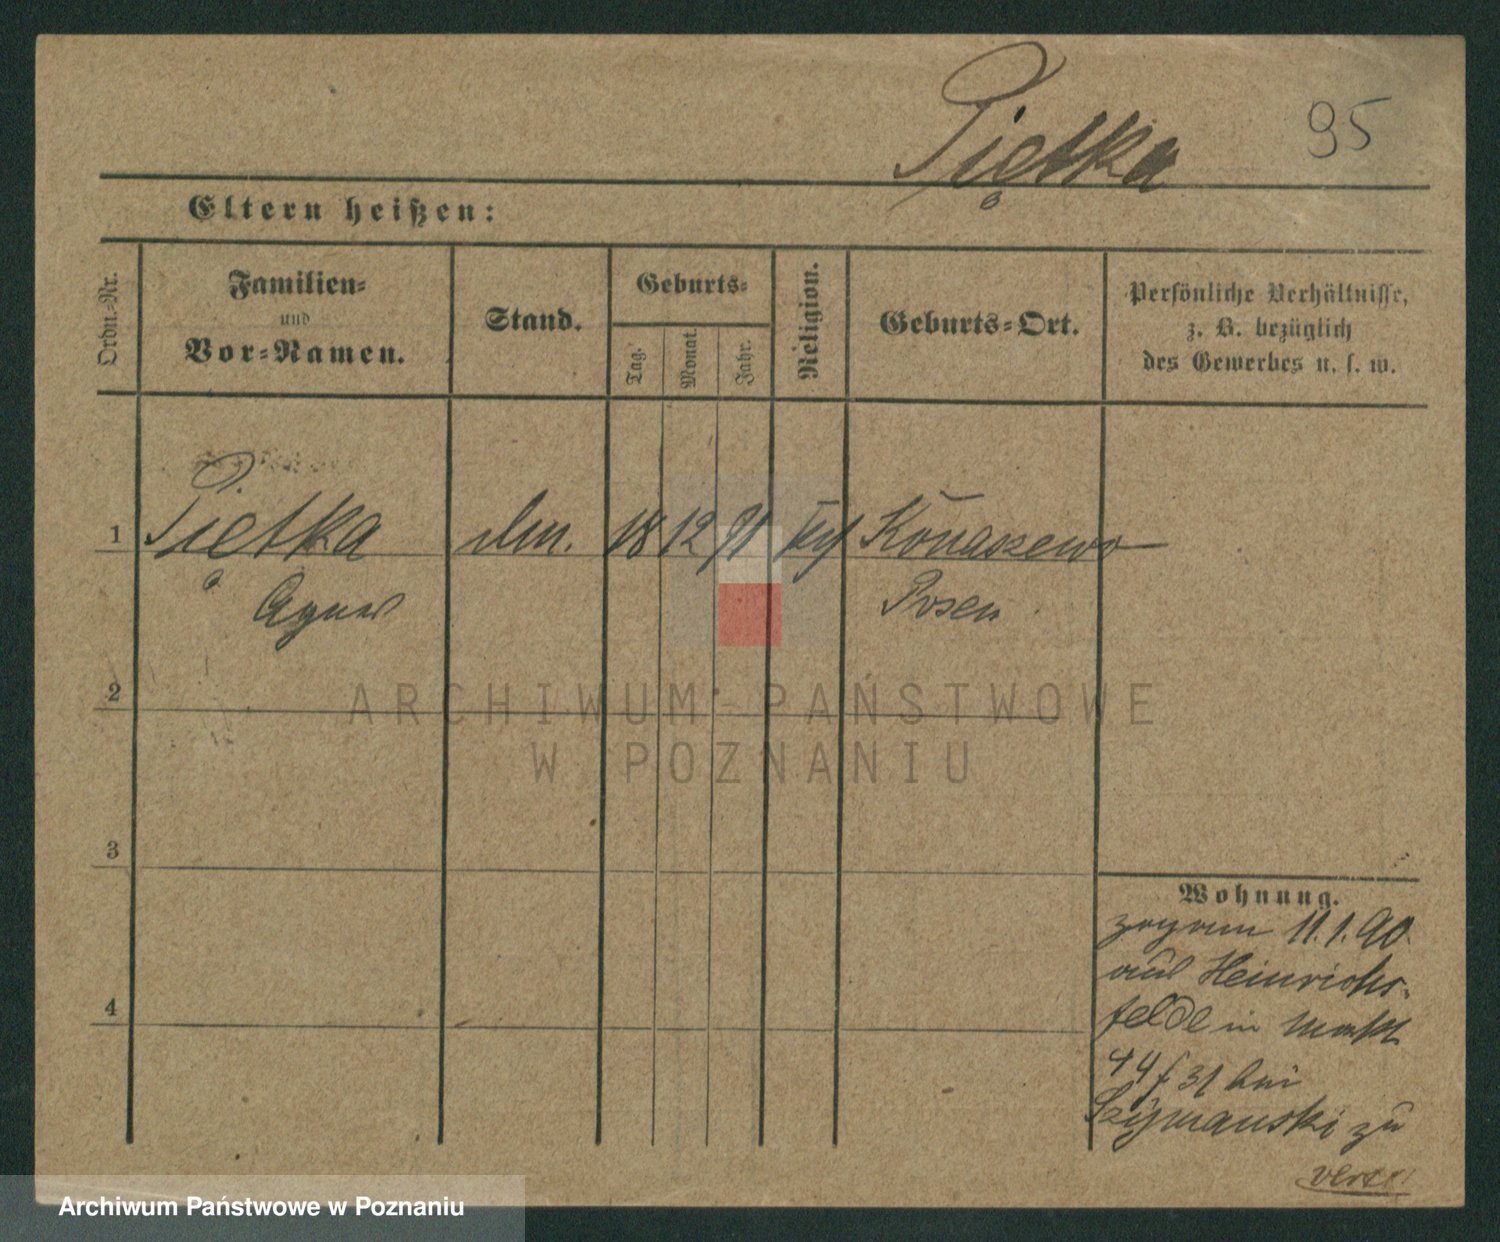 Piętka
95
Eltern heißen:
Ordn.-Nr.
Familien-
und
Vor-Namen.
Stand.
Geburts-
Tag.
Monat.
Jahr.
Religion.
Geburts-Ort.
Persönliche Verhältnisse,
z. B. bezüglich
des Gewerbes u. s. w.
1 Piętka 18 12 91
Agnes Posen
ARCHIWUM PAŃSTWOWE
W POZNANIU
2
3
4
Wohnung.
11. 1. 90.
aus Heinrichs-
felde in
44/31 bei
Szymanski zu
Archiwum Państwowe w Poznaniu